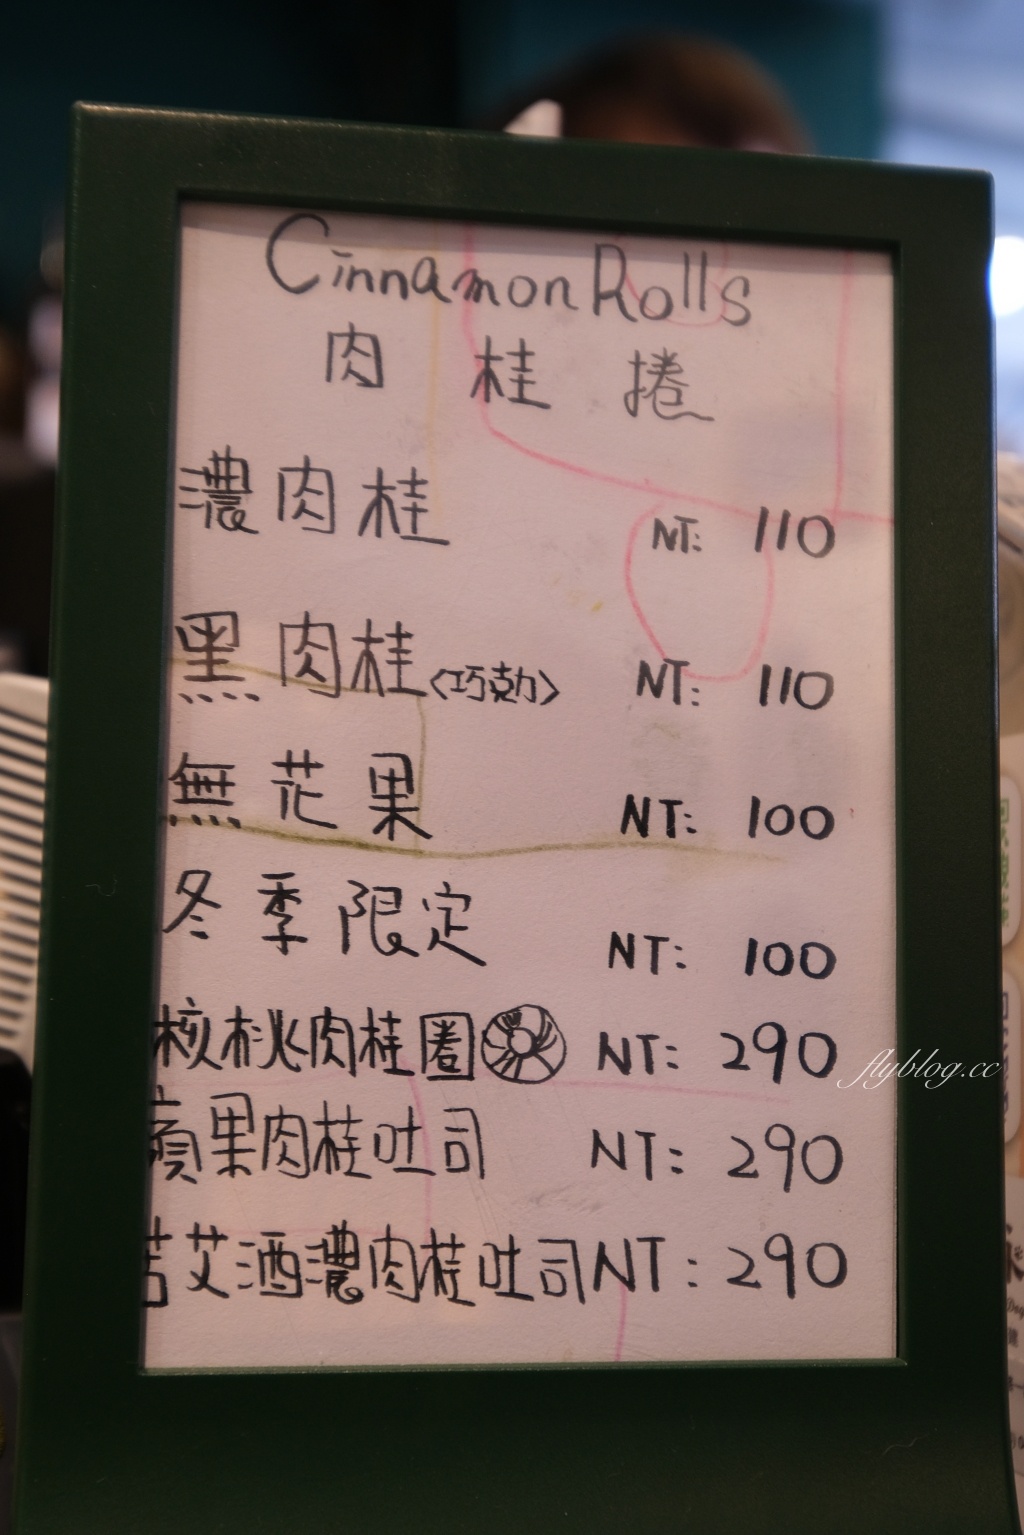 Cinnamon Rolls
肉桂捲
濃肉桂 NT: 110
黑肉桂〈巧克力〉 NT: 110
無花果 NT: 100
冬季限定 NT: 100
核桃肉桂圈 NT: 290
蘋果肉桂吐司 NT: 290
苦艾酒濃肉桂吐司 NT: 290
flyblog.cc